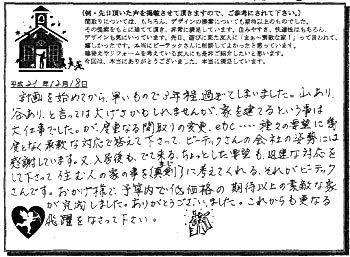 (例・先日頂いた声を掲載させて頂きますので、ご参考にされて下さい。)
間取りについては、もちろん、デザインの提案についても期待以上のものでした。
その提案をもとに建てて頂き、非常に満足しています。住みやすさ、快適性はもちろん、
デザインも気にいっています。先日、遊びに来た友人に「まぁ～素敵な家!」って言われて、
嬉しかったです。本当にビーテックさんに相談してよかったと思っています。
今回は、本当にありがとうございました。本当に満足しています。
平成21年12月18日
計画を始めてから、早いもので3年程過ぎてしまいました。山あり、
谷あり、と言っては大げさかもしれませんが、家を建てるという事は
大仕事でした。が、度重なる間取りの変更、etc.… 種々の要望に幾
度もなく柔軟な対応で応えて下さって、ビーテックさんの会社の姿勢には
感謝しています。又、入居後も、でて来る、ちょっとした要望も、迅速な対応を
して下さって 住む人の家の事を(真剣)に考えてくれる、それがビーテック
さんです。おかげ様で、予算内で(低価格の)期待以上の素敵な家
が完成しました。ありがとうございました。これからも更なる
飛躍をなさって下さい。